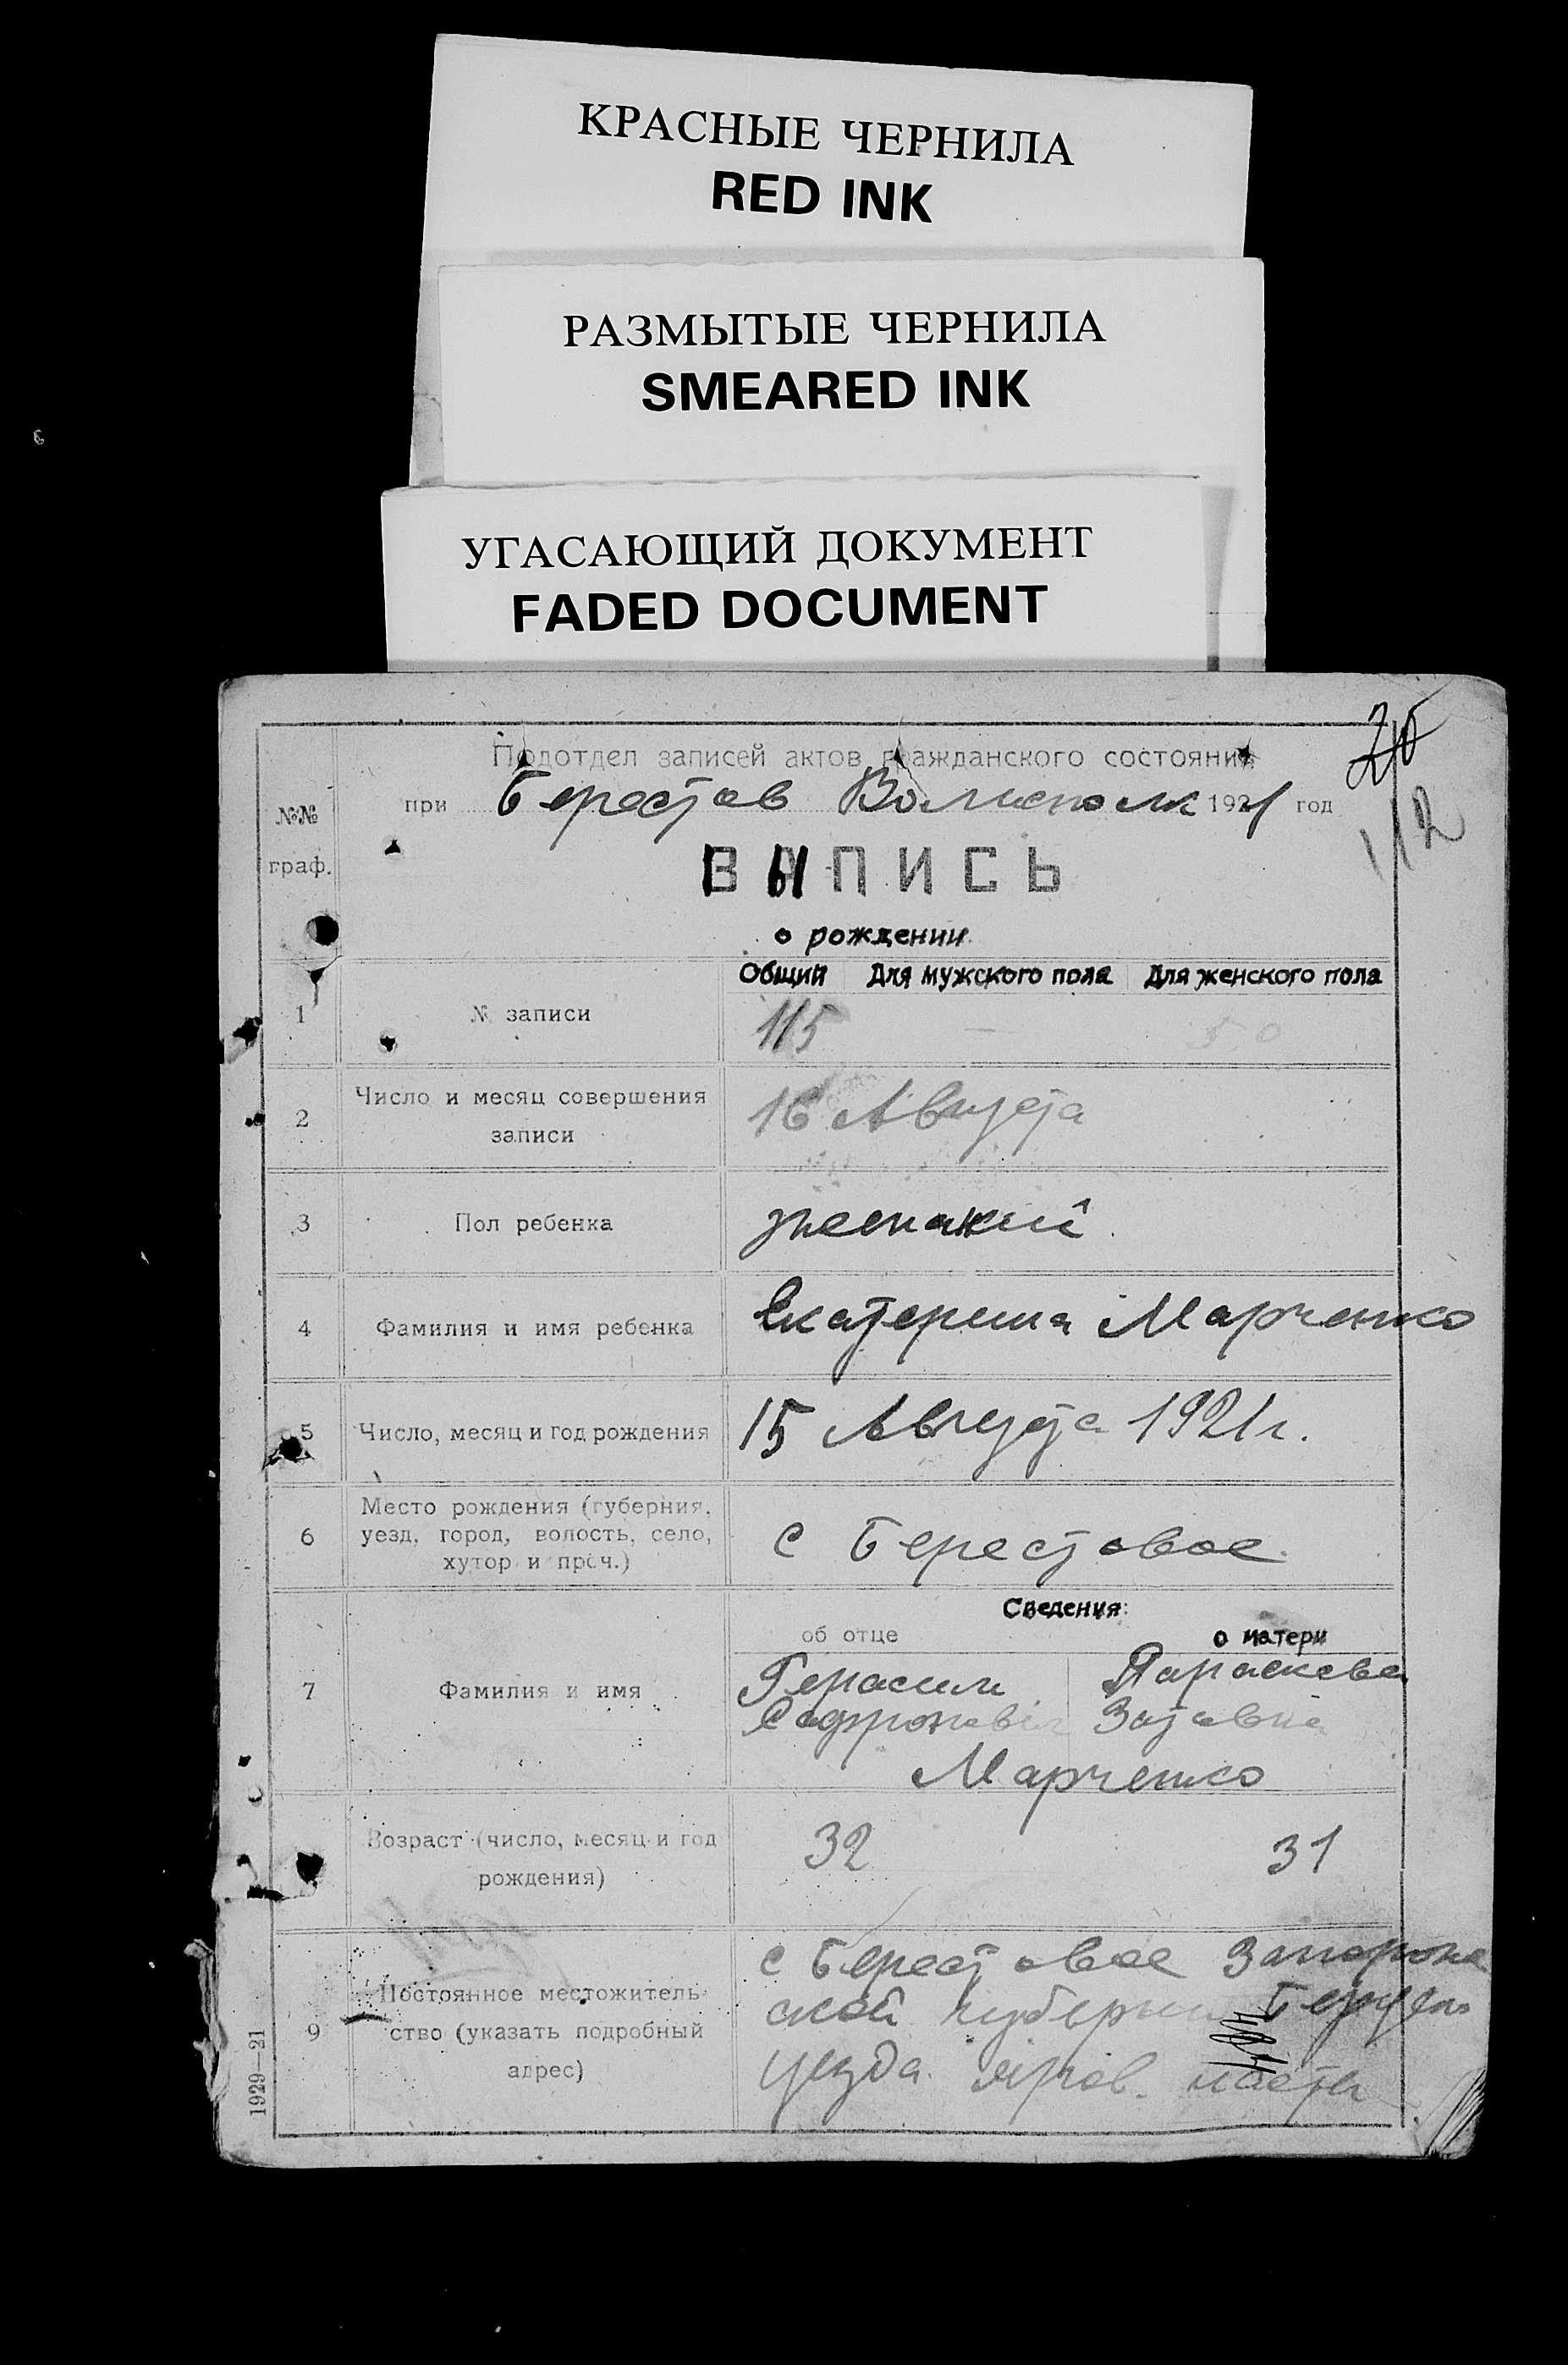 КРАСНЫЕ ЧЕРНИЛА
RED INK
РАЗМЫТЫЕ ЧЕРНИЛА
SMEARED INK
УГАСАЮЩИЙ ДОКУМЕНТ
FADED DOCUMENT
Подотдел записей актов гражданского состояния
при Берестов Волисполк 1921 год
112
№№
граф.
ЗАПИСЬ
о рождении
Общий Для мужского пола Для женского пола
1 № записи 115 — 50
2 Число и месяц совершения
записи
16 Августа
3 Пол ребенка женский
4 Фамилия и имя ребенка Екатерина Марченко
5 Число, месяц и год рождения 15 Августа 1921 г.
6 Место рождения (губерния,
уезд, город, волость, село,
хутор и проч.)
с Берестовое
Сведения:
об отце о матери
7 Фамилия и имя
Герасим Параскева
Софронович
Марченко
Возраст (число, месяц и год
рождения)
32 31
9 Постоянное местожитель-
ство (указать подробный
адрес)
с Берестовое Запорож
ской губернии
уезда
1929—21